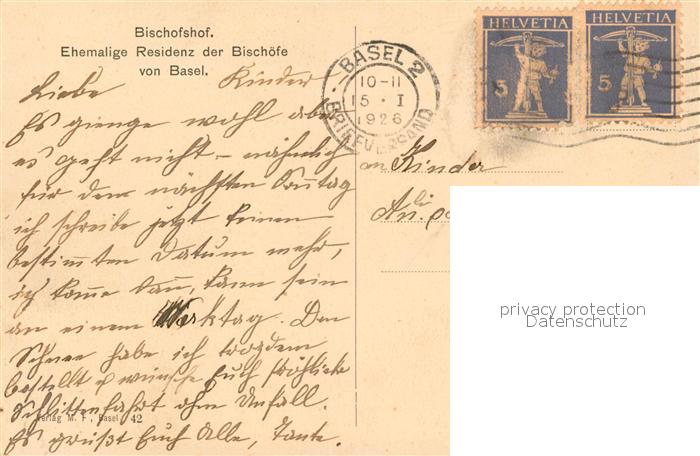 Bischofshof.
Ehemalige Residenz der Bischöfe
von Basel.
Liebe Kinder
Es gienge wohl aber
es geht nicht - nähmlich
für den nächsten Sontag
ich schreibe jetzt keinen
bestimmten Datum mehr,
ich kome dan, kann sein
an einem Werktag. Den
Schnee habe ich trozdem
bestellt & wünsche Euch fröhliche
Schlittenfahrt ohn Unfall.
Es grüßt Euch Alle, Tante.
Verlag M. F., Basel 42
BASEL 2
10-11
15 · I
1926
BRIEFVERSAND
HELVETIA
5
HELVETIA
5
an Kinder
privacy protection
Datenschutz